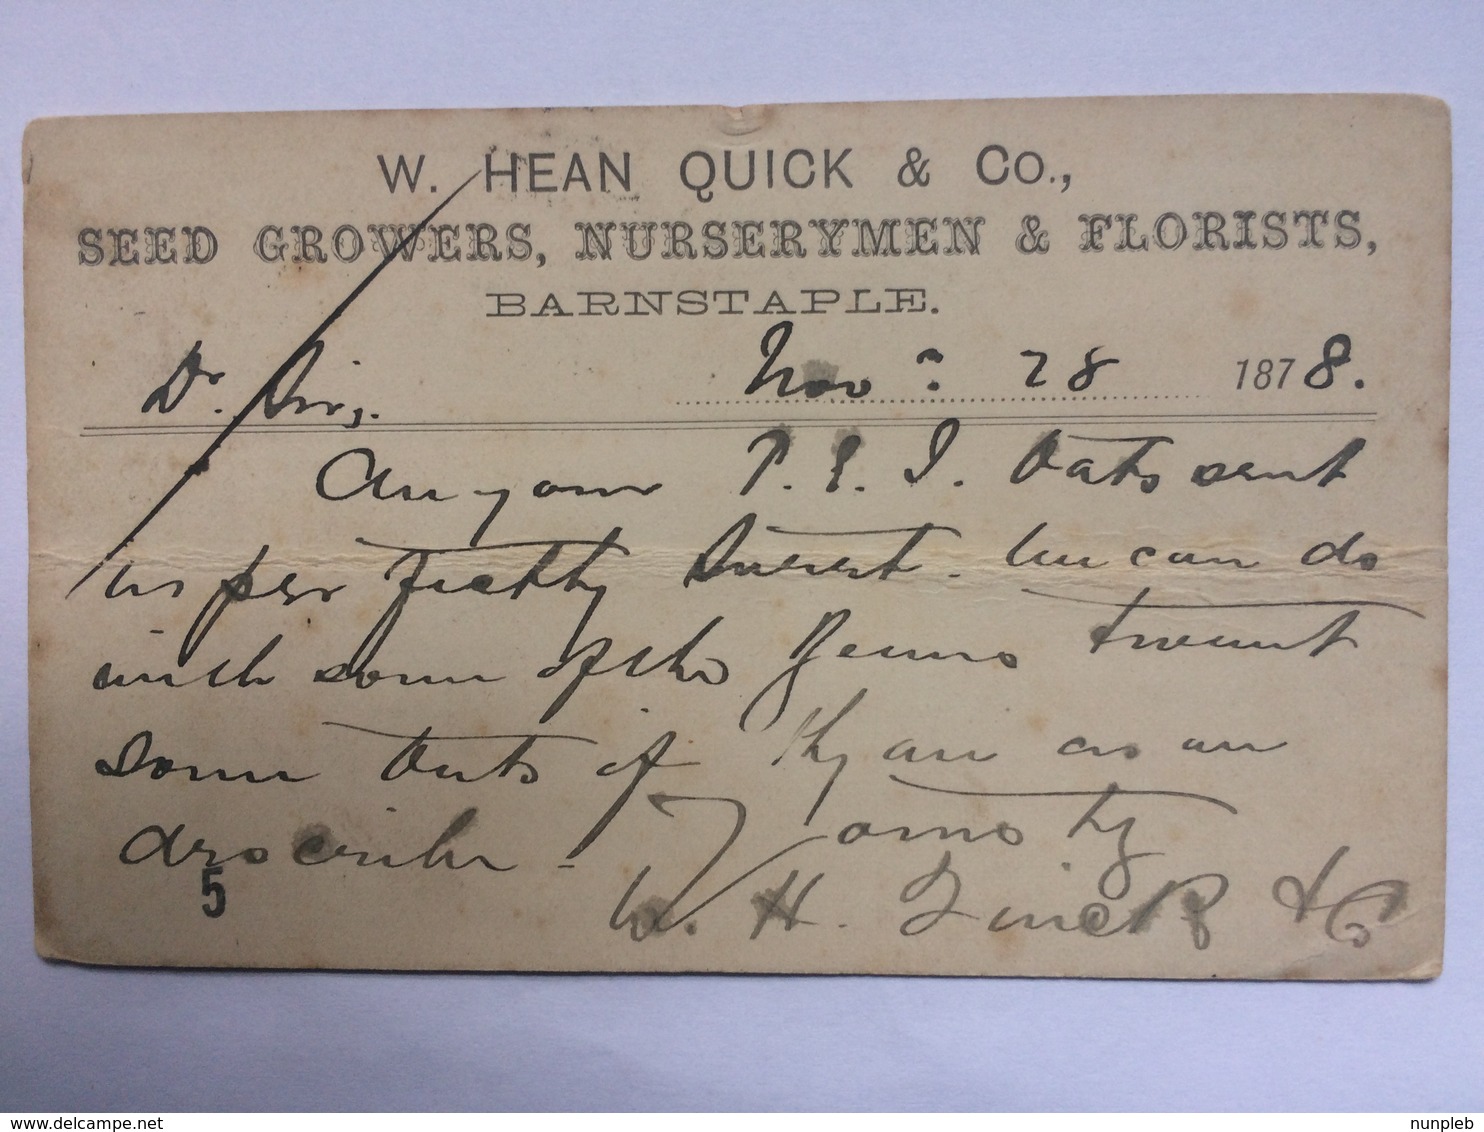 W. HEAN QUICK & Co.,
SEED GROWERS, NURSERYMEN & FLORISTS,
BARNSTAPLE.
Dr. Sir, Novr. 28 1878.
Are your P. E. I. Oats sent
as per perfectly sweet. We can do
with some of the Beans & want
some Oats if they are as you
describe -
Yours try
W. H. Quick & Co
5
nunpleb